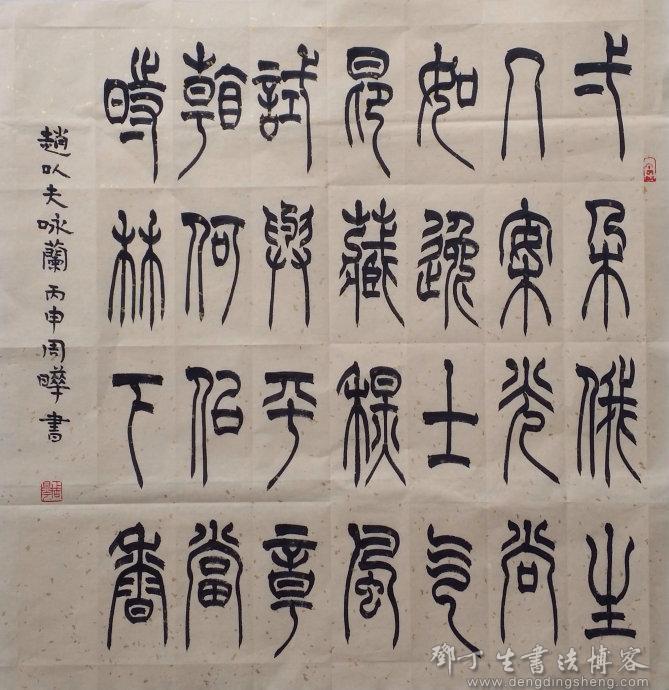 弌朵俄生
几案光尚
如逸士气
昂藏秋風
試與平章
看何佀當
時林下香
趙以夫咏蘭丙申周曄書
鄧丁生書法博客
www.dengdingsheng.com